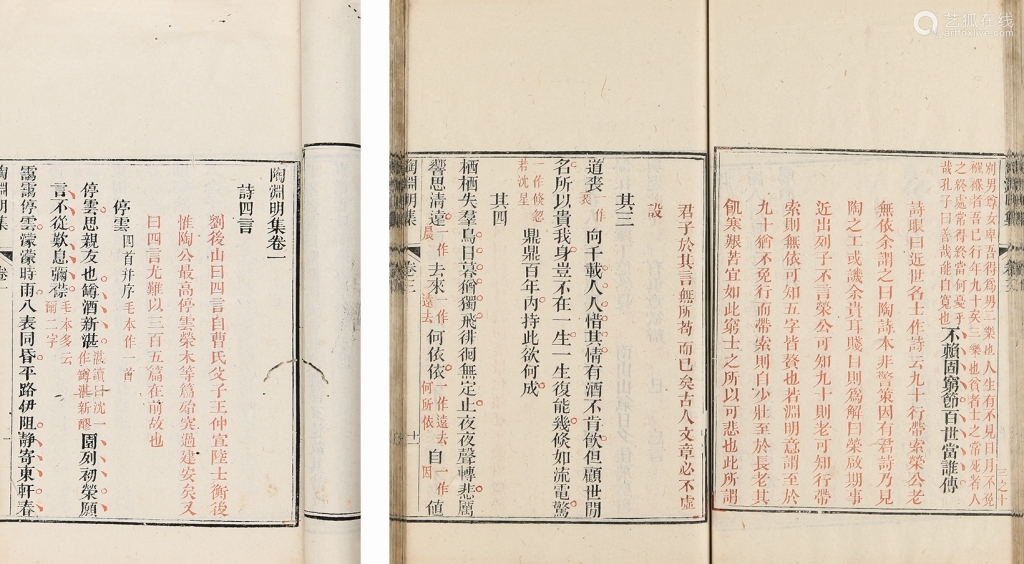 陶淵明集卷一
詩四言
劉後山曰四言自曹氏父子王仲宣陸士衡後
惟陶公最高停雲榮木等篇殆突過建安矣又
曰四言尤難以三百五篇在前故也
停雲四首并序毛本作一首
停雲思親友也罇酒新湛湛讀曰沈一作罇湛新醪園列初榮願
言不從歎息彌襟毛本多云爾二字
靄靄停雲濛濛時雨八表同昏平路伊阻靜寄東軒春
陶淵明集 卷一
別男尊女卑吾得為男二樂也人生有不見日月不免
襁褓者吾已行年九十矣三樂也貧者士之常死者人
之終處常得終當何憂乎
哉孔子曰善哉能自寬也
不賴固窮節百世當誰傳
詩眼曰近世名士作詩云九十行帶索榮公老
無依余謂之曰陶詩本非警策因有君詩乃見
陶之工或譏余貴耳賤目則為解曰榮啟期事
近出列子不言榮公可知九十則老可知行帶
索則無依可知五字皆贅也若淵明意謂至於
九十猶不免行而帶索則自少壯至於長老其
飢寒艱苦宜如此窮士之所以可悲也此所謂
三之十
君子於其言無所苟而已矣古人文章必不虛
設
其三
道喪向千載人人惜其情有酒不肯飲但顧世間
名所以貴我身豈不在一生一生復能幾倏如流電驚
一作倏忽若沈星
鼎鼎百年內持此欲何成
其四
栖栖失羣鳥日暮猶獨飛徘徊無定止夜夜聲轉悲厲
響思清遠一作晨去來一作遠去何依依一作遠去何所依自一作因值
陶淵明集 卷三 十一
艺狐在线
artfoxlive.com